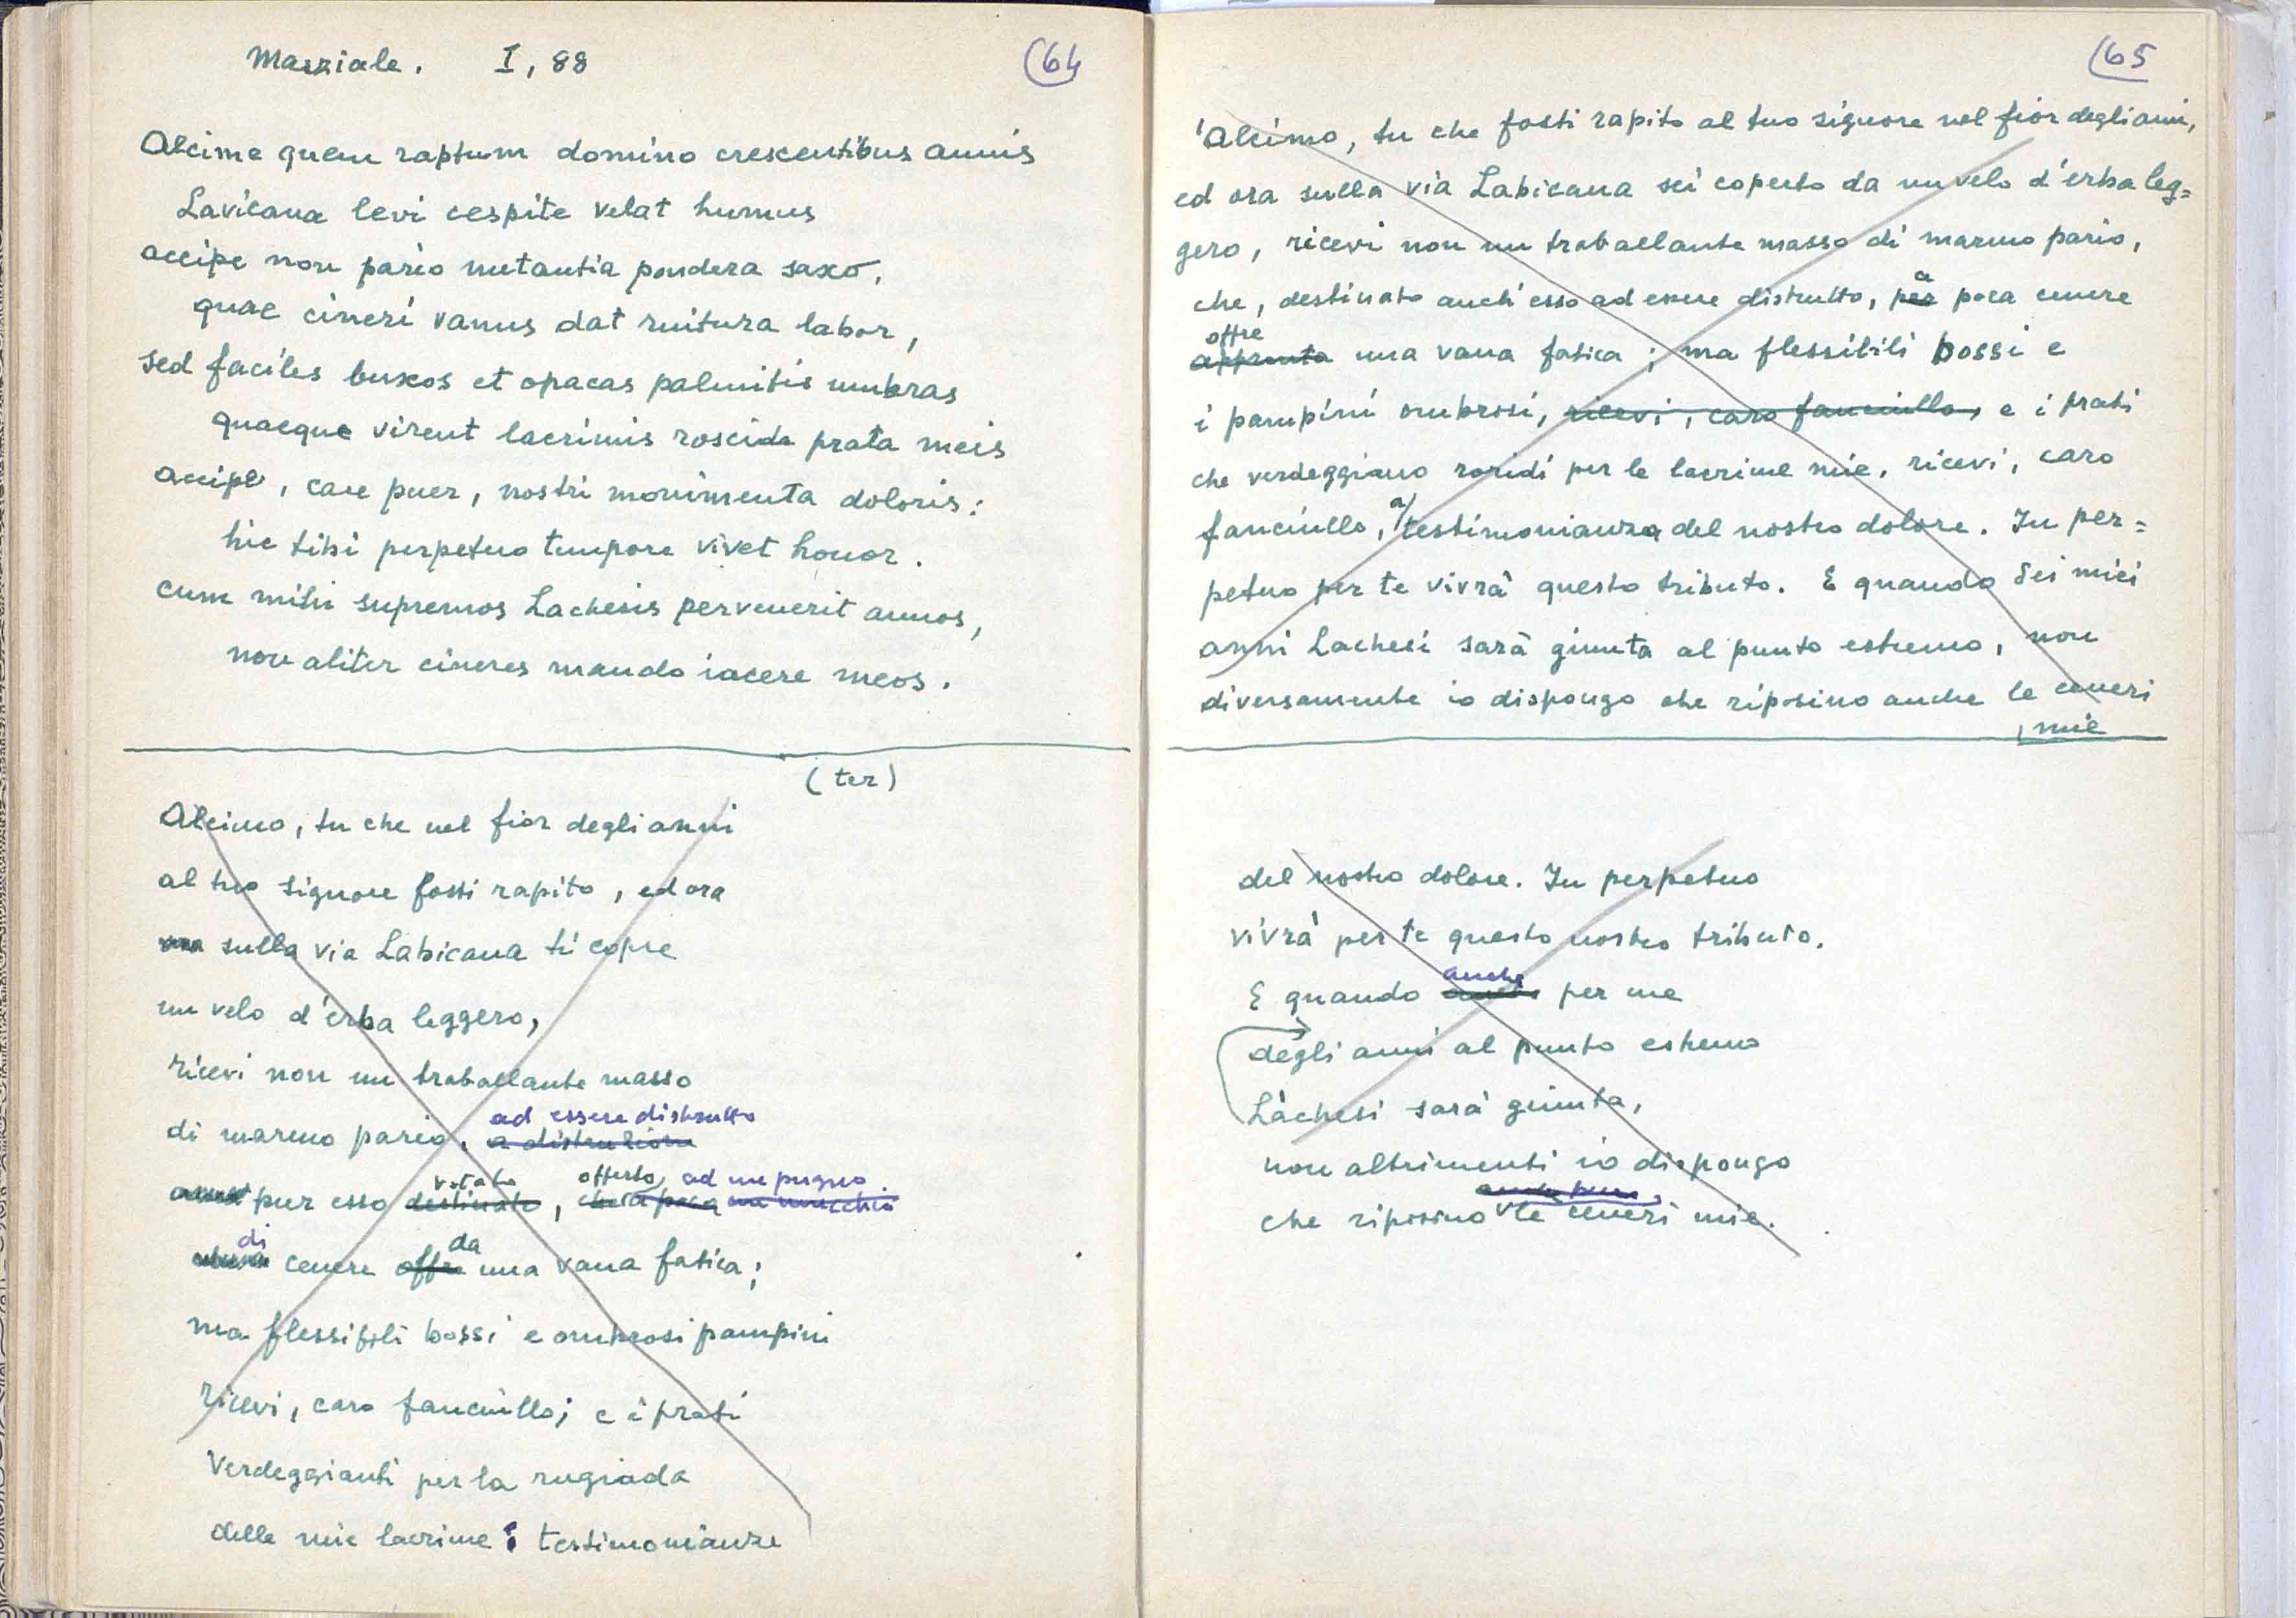 Marziale. I, 88
64
Alcime quem raptum domino crescentibus annis
Lavicana levi cespite velat humus
accipe non pario nutantia pondera saxo,
quae cineri vanus dat ruitura labor,
sed faciles buxos et opacas palmitis umbras
quaeque virent lacrimis roscida prata meis
accipe, care puer, nostri monimenta doloris:
hic tibi perpetuo tempore vivet honor.
cum mihi supremos Lachesis pervenerit annos,
non aliter cineres mando iacere meos.
(ter)
Alcimo, tu che nel fior degli anni
al tuo signore fosti rapito, ed ora
sulla via Labicana ti copre
un velo d'erba leggero,
ricevi non un traballante masso
ad essere distrutto
di marmo pario, a distruzione
votato offerto, ad un pugno
pur esso destinato, che a poca un mucchio
di da
cenere offre una vana fatica;
ma flessibili bossi e ombrosi pampini
ricevi, caro fanciullo; e i prati
verdeggianti per la rugiada
delle mie lacrime: testimonianze
65
Alcimo, tu che fosti rapito al tuo signore nel fior degli anni,
ed ora sulla via Labicana sei coperto da un velo d'erba leg=
gero, ricevi non un traballante masso di marmo pario,
a
che, destinato anch'esso ad essere distrutto, per poca cenere
offre
appronta una vana fatica; ma flessibili bossi e
i pampini ombrosi, ricevi, caro fanciullo, e i prati
che verdeggiano roridi per le lacrime mie, ricevi, caro
a
fanciullo, testimonianza del nostro dolore. In per=
petuo per te vivrà questo tributo. E quando dei miei
anni Lachesi sarà giunta al punto estremo, non
diversamente io dispongo che riposino anche le ceneri
mie
del nostro dolore. In perpetuo
vivrà per te questo nostro tributo.
anche
E quando anche per me
degli anni al punto estremo
Làchesi sarà giunta,
non altrimenti io dispongo
che riposino le ceneri mie.